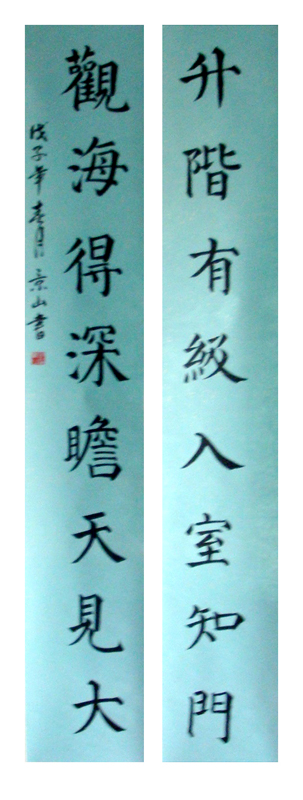 升階有級入室知門
觀海得深瞻天見大
戊子年春月於京山書